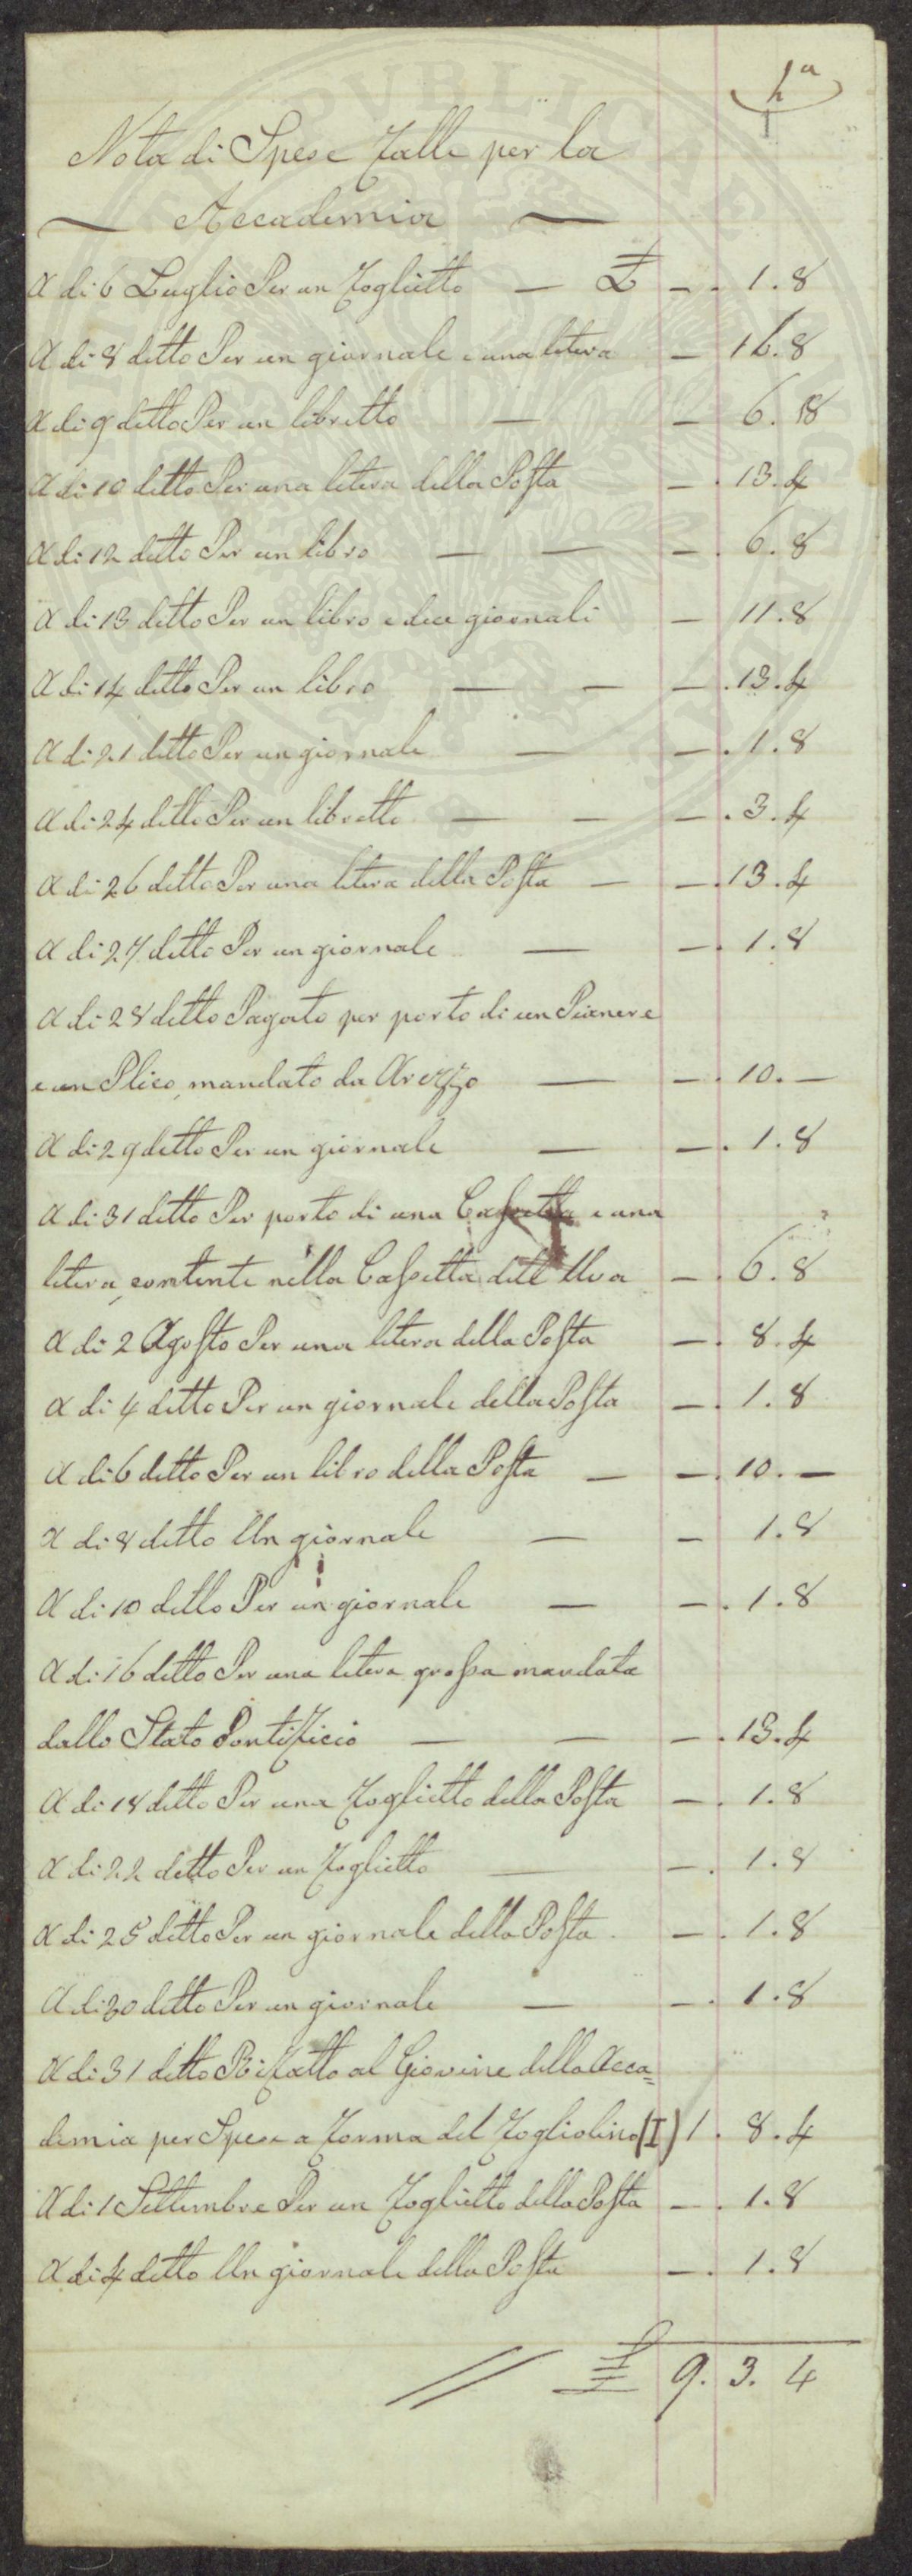 2a
Nota di Spese Fatte per la
Accademia
A di 6 Luglio Per un Foglietto — £ — . 1. 8
A di 8 detto Per un giornale e una letera — 16. 8
A di 9 detto Per un libretto — — 6. 8
A di 10 detto Per una letera della Posta — . 13. 4
A di 12 detto Per un libro — — — . 6. 8
A di 13 detto Per un libro e due giornali — 11. 8
A di 14 detto Per un libro — — — . 13. 4
A di 21 detto Per un giornale — — . 1. 8
A di 24 detto Per un libretto — — — . 3. 4
A di 26 detto Per una letera della Posta — — . 13. 4
A di 27 detto Per un giornale — — . 1. 8
A di 28 detto Pagato per porto di un Pienere
e un Plico, mandato da Arezzo — — . 10. —
A di 29 detto Per un giornale — — . 1. 8
A di 31 detto Per porto di una Cassetta e una
letera, contente nella Cassetta dell'Uva — . 6. 8
A di 2 Agosto Per una letera della Posta — . 8. 4
A di 4 detto Per un giornale della Posta — . 1. 8
A di 6 detto Per un libro della Posta — — . 10. —
A di 8 detto Un giornale — — 1. 8
A di 10 detto Per un giornale — — . 1. 8
A di 16 detto Per una letera grossa mandata
dallo Stato Pontificio — — — . 13. 4
A di 18 detto Per una Foglietto della Posta — . 1. 8
A di 22 detto Per un Foglietto — — . 1. 8
A di 25 detto Per un giornale della Posta — . 1. 8
A di 30 detto Per un giornale — — . 1. 8
A di 31 detto Rifatto al Giovine della Acca=
demia per Spese a forma del Fogliolino (I) 1. 8. 4
A di 1 Settembre Per un Foglietto della Posta — . 1. 8
A di 4 detto Un giornale della Posta — . 1. 8
£ 9. 3. 4